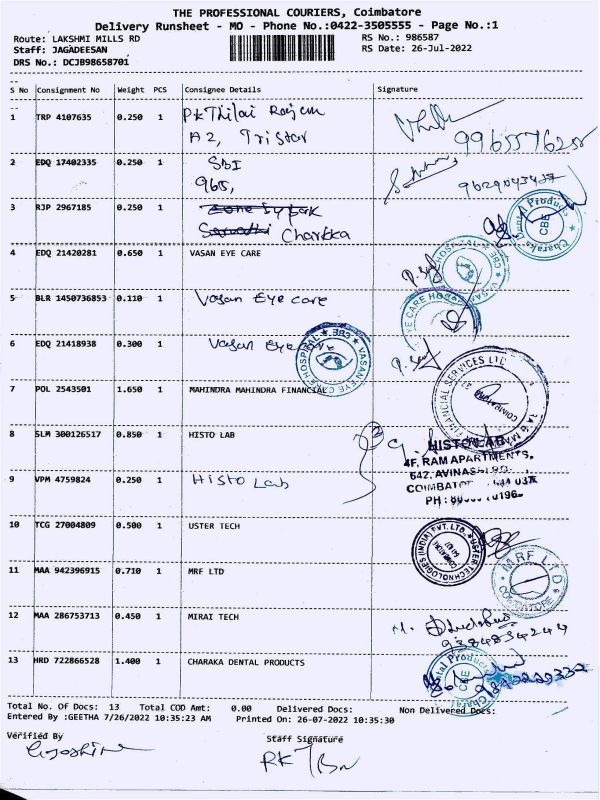 THE PROFESSIONAL COURIERS, Coimbatore
Delivery Runsheet - MO - Phone No.:0422-3505555 - Page No.:1
Route: LAKSHMI MILLS RD RS No.: 986587
Staff: JAGADEESAN RS Date: 26-Jul-2022
DRS No.: DCJB98658701
S No Consignment No Weight PCS Consignee Details Signature
1 TRP 4107635 0.250 1 PK Thilai
A2, Tristar
2 EDQ 17402335 0.250 1 SBI
965,
3 RJP 2967185 0.250 1
Charkka
Charaka Dental Products CBE
4 EDQ 21420281 0.650 1 VASAN EYE CARE
5 BLR 1450736853 0.110 1 Vasan Eye care
6 EDQ 21418938 0.300 1 Vasan Eye
VASAN EYE CARE HOSPITAL CBE
7 POL 2543501 1.650 1 MAHINDRA MAHINDRA FINANCIAL
FINANCIAL SERVICES LTD
8 SLM 300126517 0.850 1 HISTO LAB
HISTOLAB
4F, RAM APARTMENTS,
642, AVINASHI
9 VPM 4759824 0.250 1 Histo Lab
PH :
10 TCG 27004809 0.500 1 USTER TECH
USTER TECHNOLOGIES (INDIA) PVT. LTD.
11 MAA 942396915 0.710 1 MRF LTD
MRF LTD COIMBATORE
12 MAA 286753713 0.450 1 MIRAI TECH
13 HRD 722866528 1.400 1 CHARAKA DENTAL PRODUCTS
Total No. Of Docs: 13 Total COD Amt: 0.00 Delivered Docs: Non Delivered Docs:
Entered By :GEETHA 7/26/2022 10:35:23 AM Printed On: 26-07-2022 10:35:30
Verified By Staff Signature